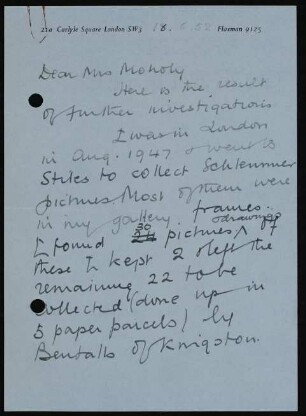 21a Carlyle Square London SW3 18.6.52 Flaxman 9125
Dear Mrs Moholy
Here is the result
of further investigations
I was in London
in Aug. 1947 & went to
Stiles to collect Schlemmer
pictures. Most of them were
in my gallery frames.
I found 30 pictures & drawings Of
these I kept 2 & left the
remaining 22 to be
collected (done up in
5 paper parcels) by
Bentalls of Knigston.